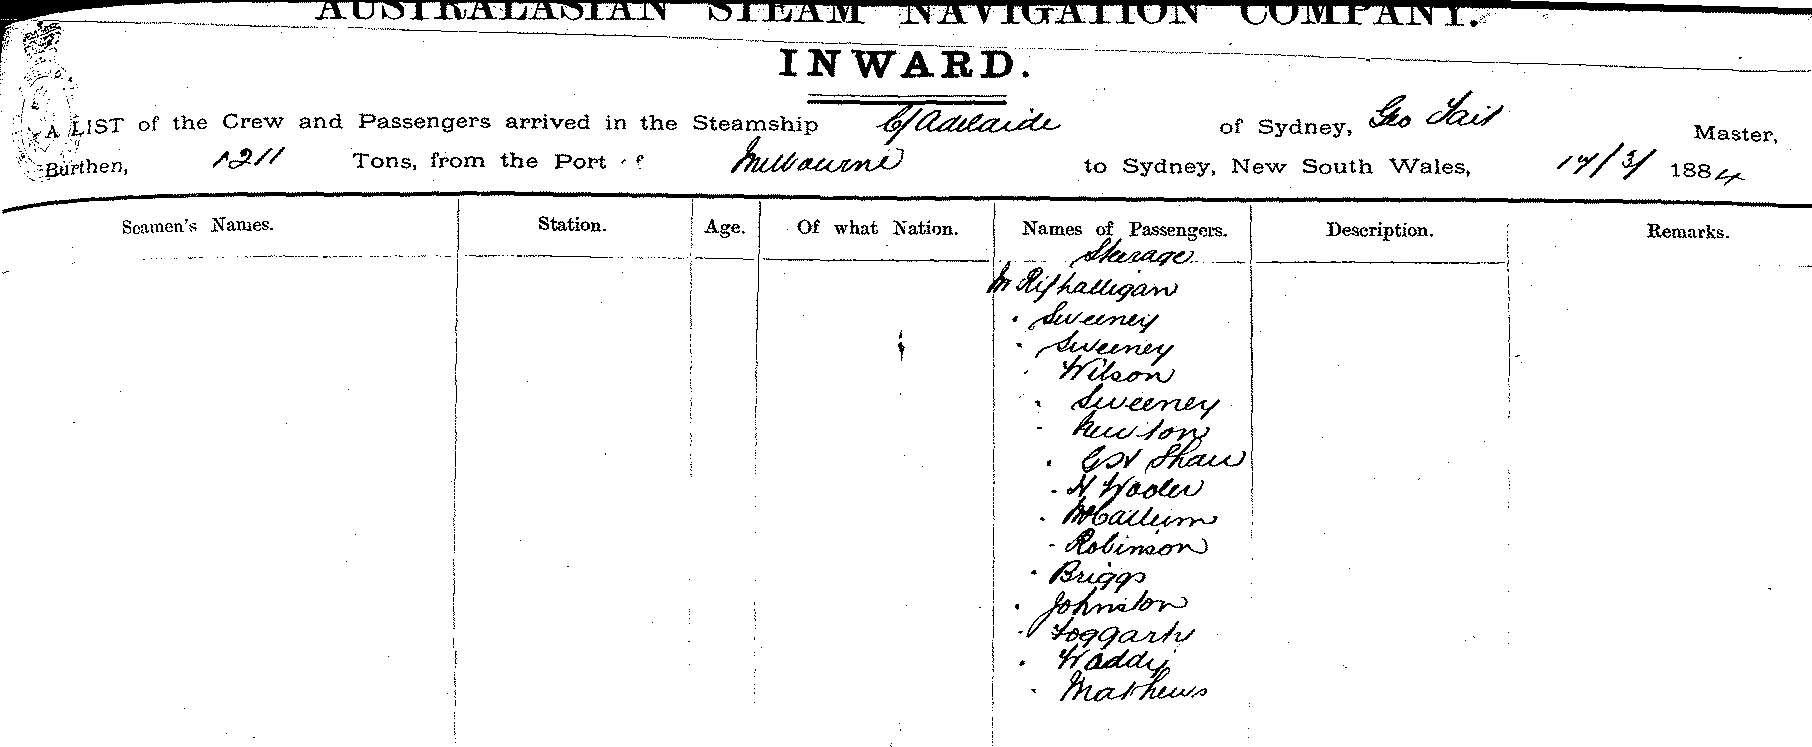 AUSTRALASIAN STEAM NAVIGATION COMPANY.
INWARD.
A LIST of the Crew and Passengers arrived in the Steamship C/Adelaide of Sydney, Geo Tait Master,
Burthen, 1211 Tons, from the Port of Melbourne to Sydney, New South Wales, 17/3/ 1884
Seamen's Names. Station. Age. Of what Nation. Names of Passengers. Description. Remarks.
Steerage
Mr
" Sweeney
" Sweeney
" Wilson
" Sweeney
" Newton
" Shaw
" H
" McCallum
" Robinson
" Briggs
" Johnston
" Foggarty
" Waddy
" Mathews